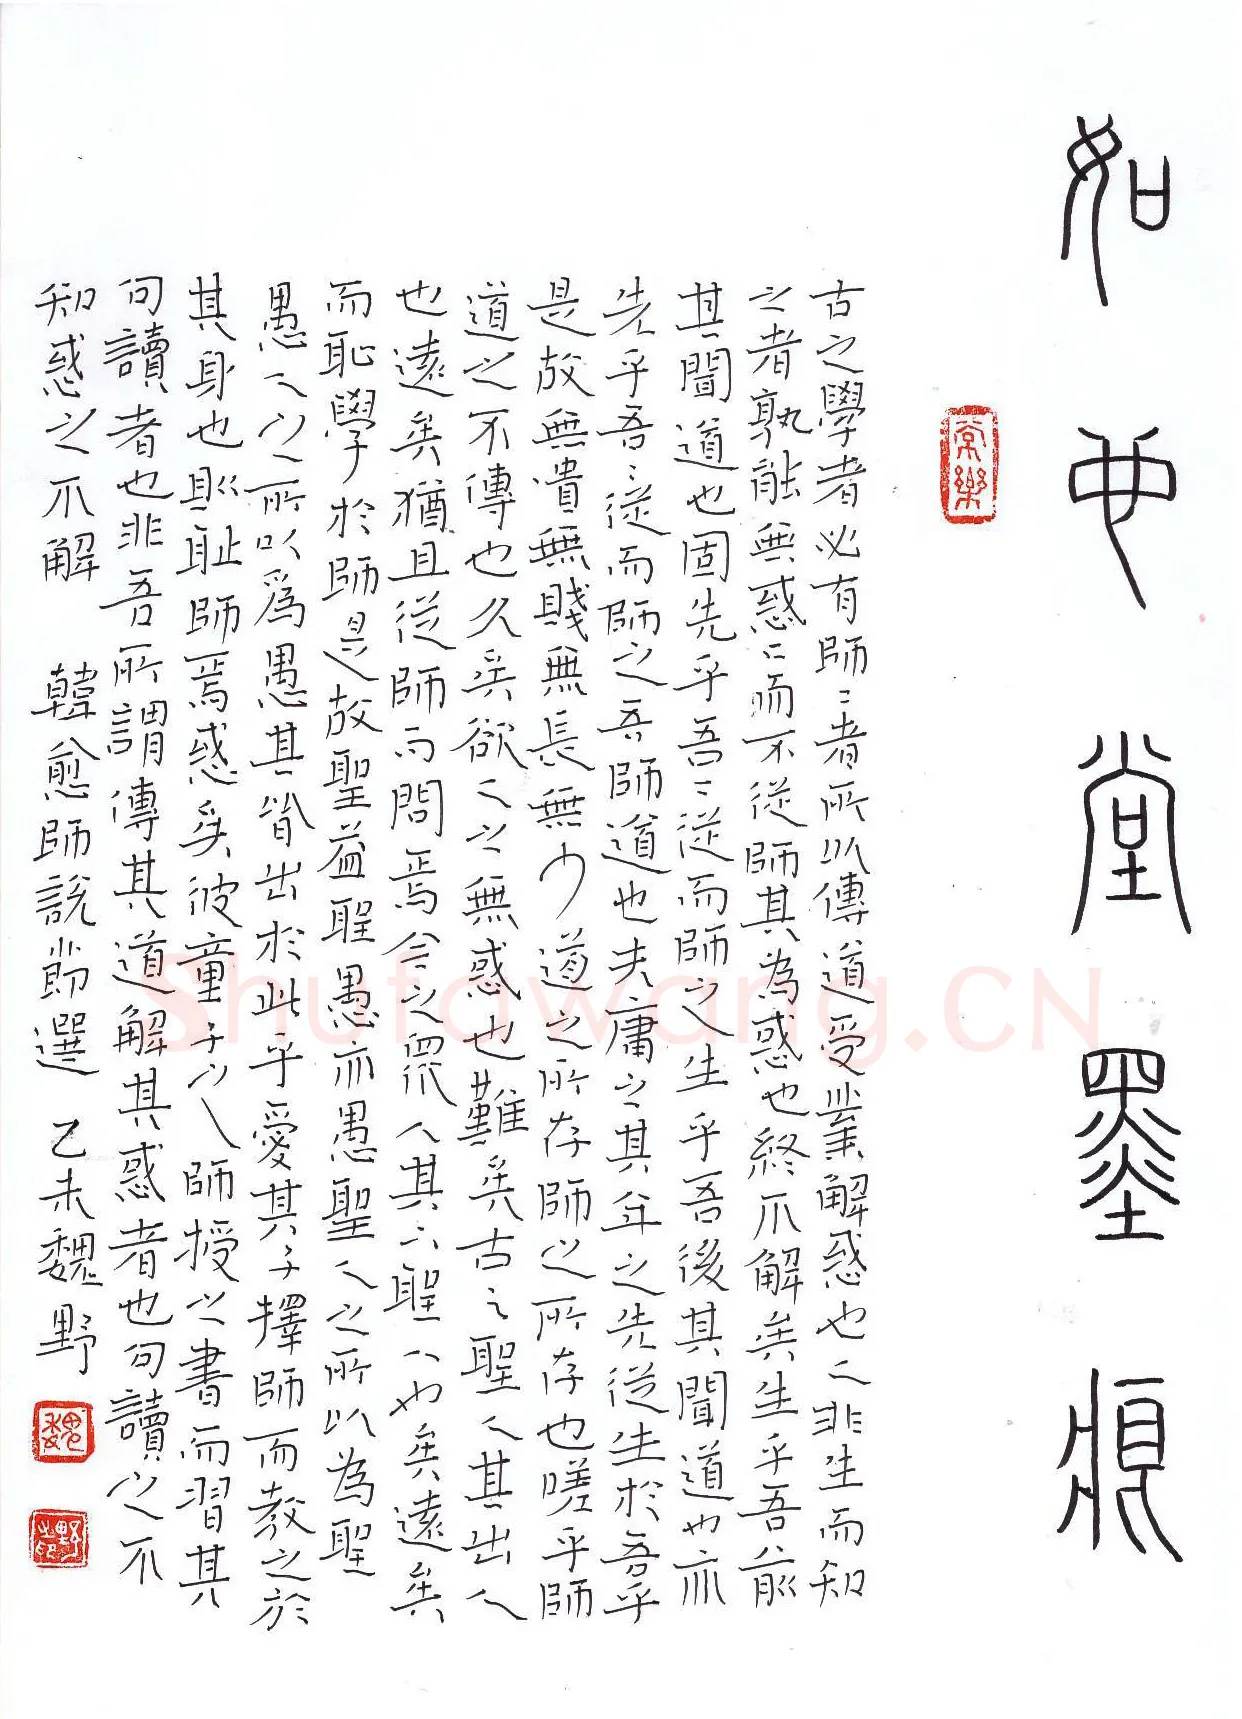 如堂墨痕
常樂
古之學者必有師〻者所以傳道受業解惑也人非生而知
之者孰能無惑〻而不從師其為惑也終不解矣生乎吾前
其聞道也固先乎吾〻從而師之生乎吾後其聞道也亦
先乎吾〻從而師之吾師道也夫庸之其年之先從生於吾乎
是故無貴無賤無長無少道之所存師之所存也嗟乎師
道之不傳也久矣欲人之無惑也難矣古之聖人其出人
也遠矣猶且從師而問焉今之眾人其下聖人也矣遠矣
而恥學於師是故聖益聖愚亦愚聖人之所以為聖
愚人之所以為愚其皆出於此乎愛其子擇師而教之於
其身也則恥師焉惑矣彼童子之師授之書而習其
句讀者也非吾所謂傳其道解其惑者也句讀之不
知惑之不解 韓愈師說節選 乙未魏野
魏
野印
Shufawang.CN